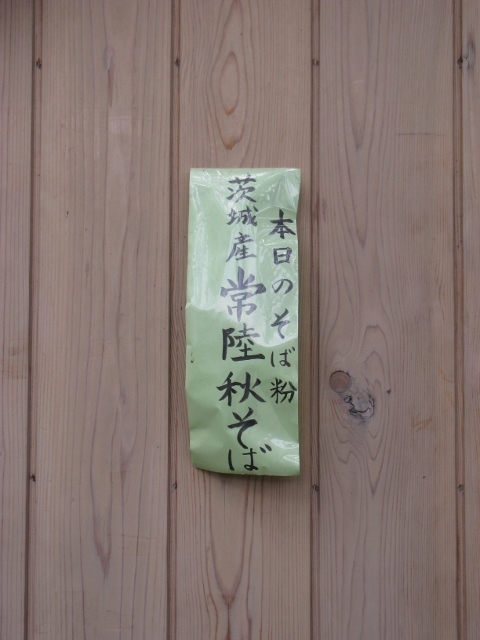 本日のそば粉
茨城産常陸秋そば